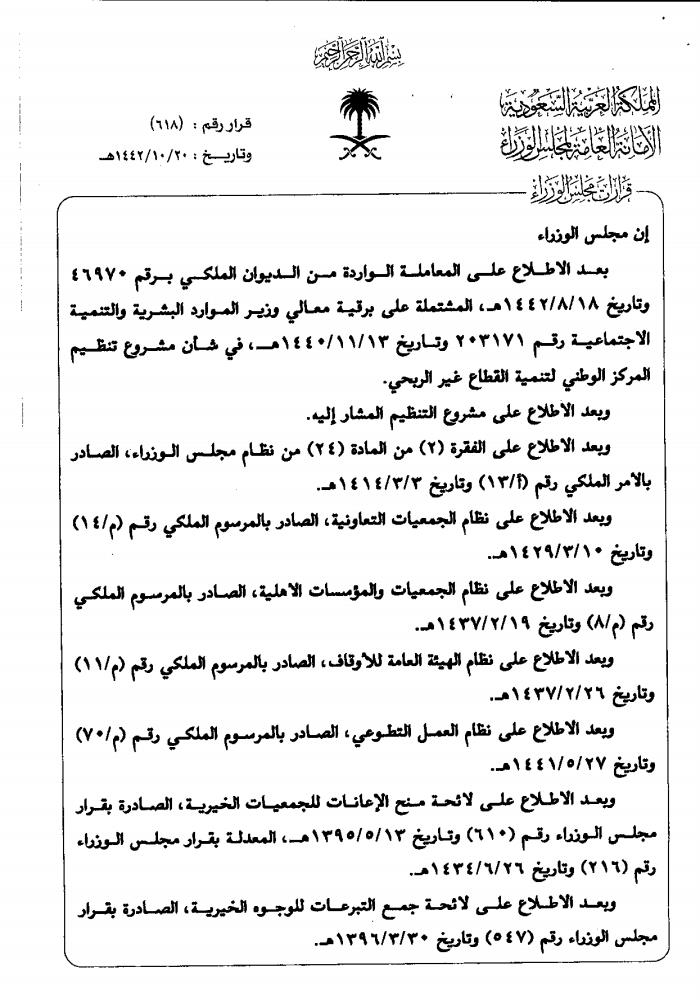 بسم الله الرحمن الرحيم
المملكة العربية السعودية
الأمانة العامة لمجلس الوزراء
قرار رقم : (٦١٨)
وتاريخ : ١٤٤٢/١٠/٢٠هـ
قرارات مجلس الوزراء
إن مجلس الوزراء
بعد الاطلاع على المعاملة الواردة من الديوان الملكي برقم ٤٦٩٧٠
وتاريخ ١٤٤٢/٨/١٨هـ، المشتملة على برقية معالي وزير الموارد البشرية والتنمية
الاجتماعية رقم ٢٠٣١٧١ وتاريخ ١٤٤٠/١١/١٣هـ، في شأن مشروع تنظيم
المركز الوطني لتنمية القطاع غير الربحي.
وبعد الاطلاع على مشروع التنظيم المشار إليه.
وبعد الاطلاع على الفقرة (٢) من المادة (٢٤) من نظام مجلس الوزراء، الصادر
بالأمر الملكي رقم (أ/١٣) وتاريخ ١٤١٤/٣/٣هـ.
وبعد الاطلاع على نظام الجمعيات التعاونية، الصادر بالمرسوم الملكي رقم (م/١٤)
وتاريخ ١٤٢٩/٣/١٠هـ.
وبعد الاطلاع على نظام الجمعيات والمؤسسات الأهلية، الصادر بالمرسوم الملكي
رقم (م/٨) وتاريخ ١٤٣٧/٢/١٩هـ.
وبعد الاطلاع على نظام الهيئة العامة للأوقاف، الصادر بالمرسوم الملكي رقم (م/١١)
وتاريخ ١٤٣٧/٢/٢٦هـ.
وبعد الاطلاع على نظام العمل التطوعي، الصادر بالمرسوم الملكي رقم (م/٧٠)
وتاريخ ١٤٤١/٥/٢٧هـ.
وبعد الاطلاع على لائحة منح الإعانات للجمعيات الخيرية، الصادرة بقرار
مجلس الوزراء رقم (٦١٠) وتاريخ ١٣٩٥/٥/١٣هـ، المعدلة بقرار مجلس الوزراء
رقم (٢١٦) وتاريخ ١٤٣٤/٦/٢٦هـ.
وبعد الاطلاع على لائحة جمع التبرعات للوجوه الخيرية، الصادرة بقرار
مجلس الوزراء رقم (٥٤٧) وتاريخ ١٣٩٦/٣/٣٠هـ.